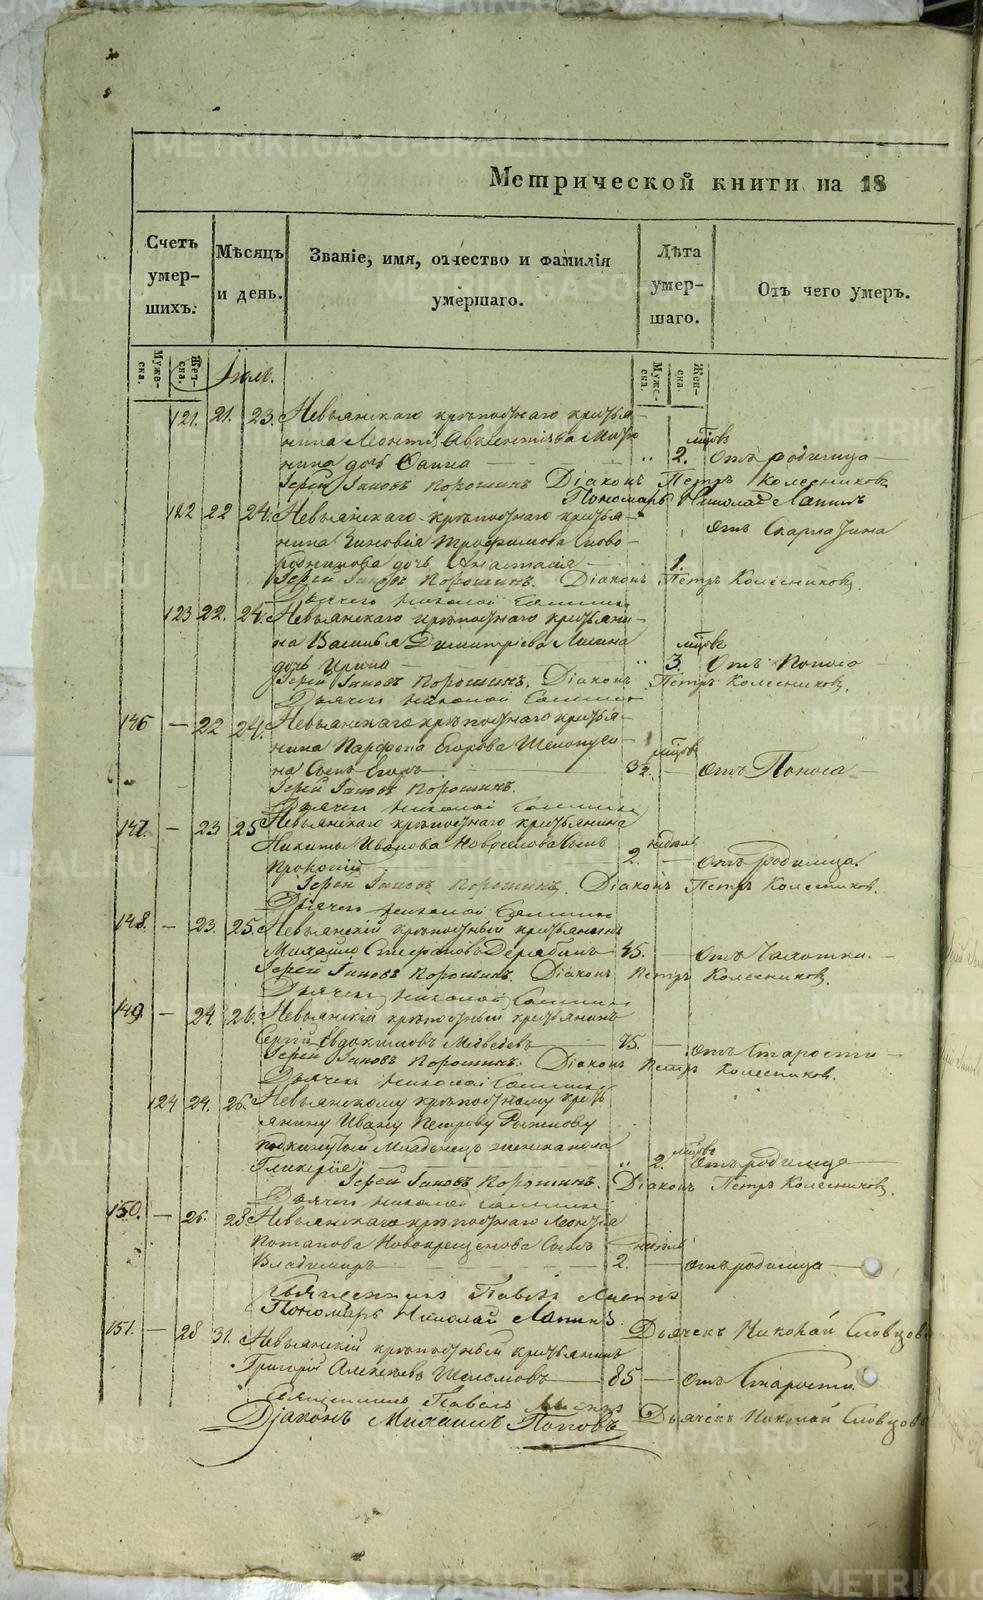 Метрической книги на 18
Счетъ умер-шихъ.
Мѣсяцъ и день.
Званіе, имя, отчество и фамилія умершаго.
Лѣта умер-шаго.
Отъ чего умеръ.
Муже-ска.
Жен-ска.
Муже-ска.
Жен-ска.
Іюль.
121. 21. 23. Невьянскаго крѣпостнаго крестья-
нина Леонтія
нина дочь 2. отъ родимца
Іерей Іаковъ Порошинъ Діаконъ Петръ Колесниковъ
Пономарь Николай Лапинъ
122 22 24. Невьянскаго крѣпостнаго крестья- отъ Скарлатина
нина Зиновія Трофимова Ново-
дочь Анастасія 1.
Іерей Іаковъ Порошинъ. Діаконъ Петръ Колесниковъ
Дьячекъ Николай
123 22. 24. Невьянскаго крѣпостнаго крестьяни-
на Василья Димитріева
дочь Ирина 3. отъ Поноса
Іерей Іаковъ Порошинъ. Діаконъ Петръ Колесниковъ.
Дьячекъ Николай
146 — 22 24. Невьянскаго крѣпостнаго крестья-
нина Парфена Егорова
на Сынъ Егоръ отъ Поноса
Іерей Іаковъ Порошинъ.
Дьячекъ Николай
147. — 23 25 Невьянскаго крѣпостнаго крестьянина
Никиты Иванова Новоселова Сынъ
Прокопій 2. недѣли — отъ родимца.
Іерей Іаковъ Порошинъ. Діаконъ Петръ Колесниковъ.
Дьячекъ Николай
148. — 23. 25. Невьянскій крѣпостный крестьянинъ
Михайло Стефановъ Дерябинъ 45. — отъ Чахотки.
Іерей Іаковъ Порошинъ. Діаконъ Петръ Колесниковъ.
Дьячекъ Николай
149 — 24. 26. Невьянскій крѣпостный крестьянинъ
Сергій Евдокимовъ Медведевъ 75. — отъ Старости
Іерей Іаковъ Порошинъ. Діаконъ Петръ Колесниковъ.
Дьячекъ Николай
124 24. 26. Невьянскому крѣпостному кресть-
янину Ивану Петрову
подкинутый Младенецъ женска пола
Гликерія 2. отъ родимца
Іерей Іаковъ Порошинъ. Діаконъ Петръ Колесниковъ.
Дьячекъ Николай
150. — 26. 28 Невьянскаго крѣпостнаго Леонтія
Потапова Новокрещенова Сынъ недѣли
Владимиръ 2. — отъ родимца
Священникъ Павелъ
Пономарь Николай Лапинъ. Дьячекъ Николай Словцовъ
151. — 28 31. Невьянскій крѣпостный крестьянинъ
Григорій Алексѣевъ Шеломовъ 85 — отъ Старости.
Священникъ Павелъ
Діаконъ Михаилъ Поповъ Дьячекъ Николай Словцовъ
METRIKI.GASO-URAL.RU